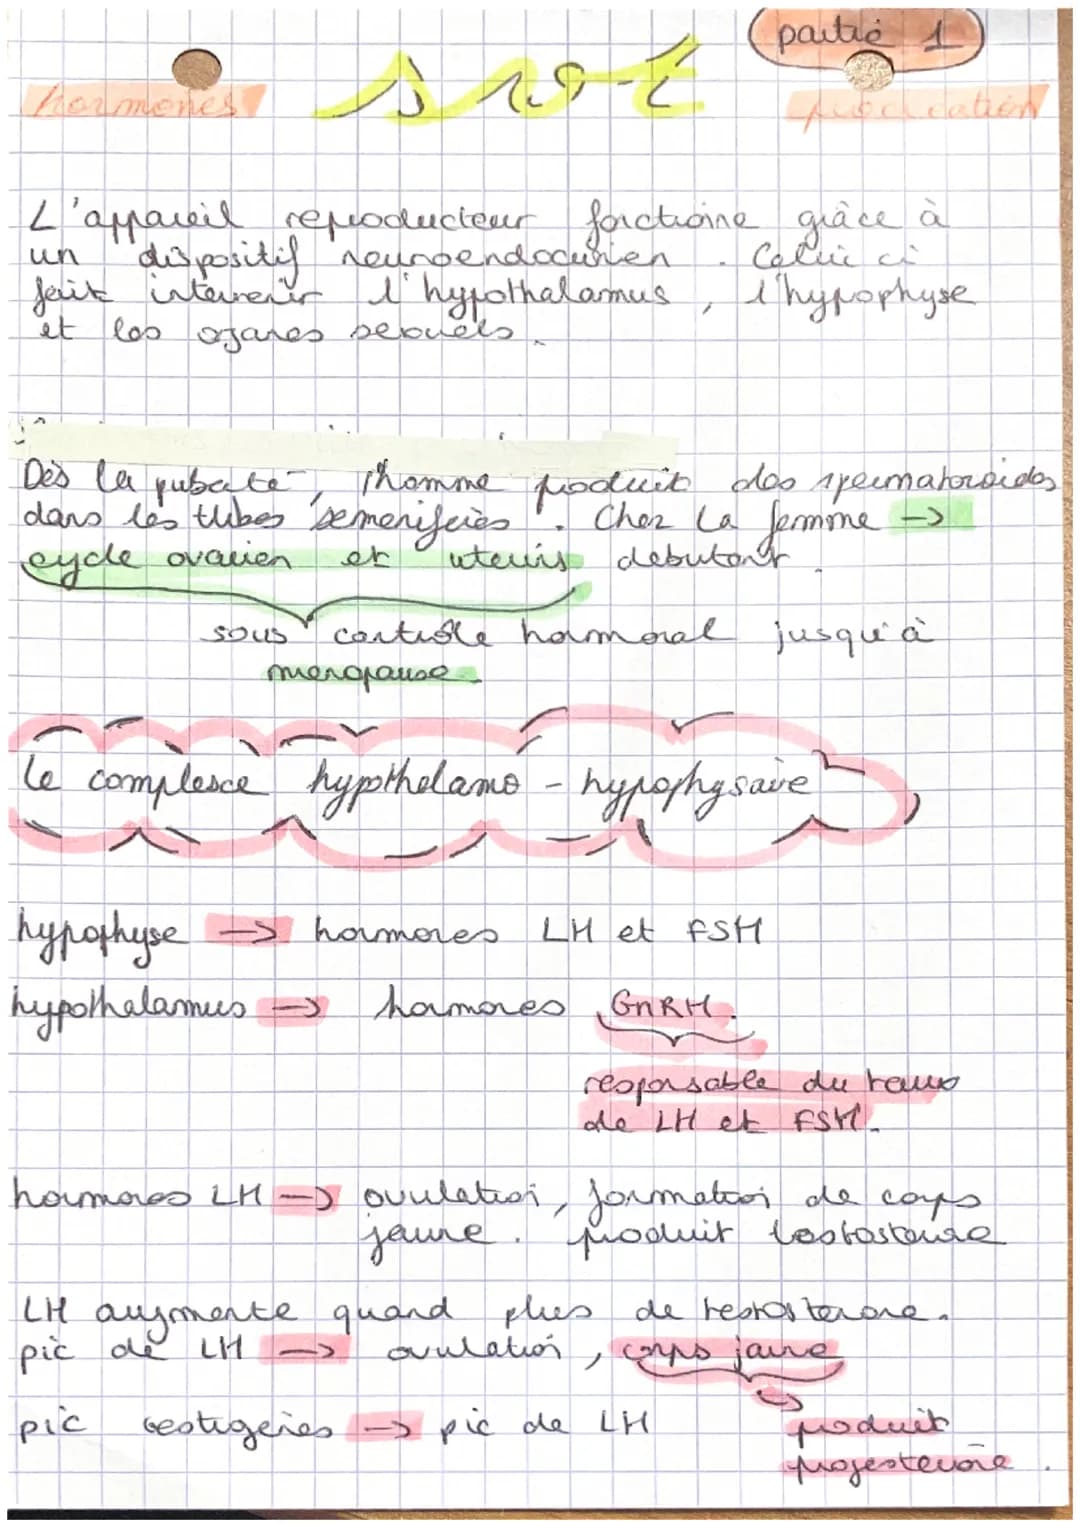 partie 1
hormones
svt
procreation
L'appareil reproducteur fonctionne grâce à
un dispositif neuroendocrinien. Celui ci
fait intervenir l'hypothalamus, l'hypophyse
et les organes sexuels.
Dès la puberté, l'homme produit des spermatozoides
dans les tubes seminifères. Chez la femme ->
cycle ovarien et uterus debutant.
sous controle hormonal jusqu'à
menopause
le complexe hypothalamo - hypophysaire
hypophyse -> hormones LH et FSH
hypothalamus -> hormones GnRH.
responsable du taux
de LH et FSH.
hormones LH -> ovulation, formation de corps
jaune. produit testosterone
LH augmente quand plus de testosterone.
pic de LH -> ovulation, corps jaune
pic -> pic de LH
produit
progesterone.